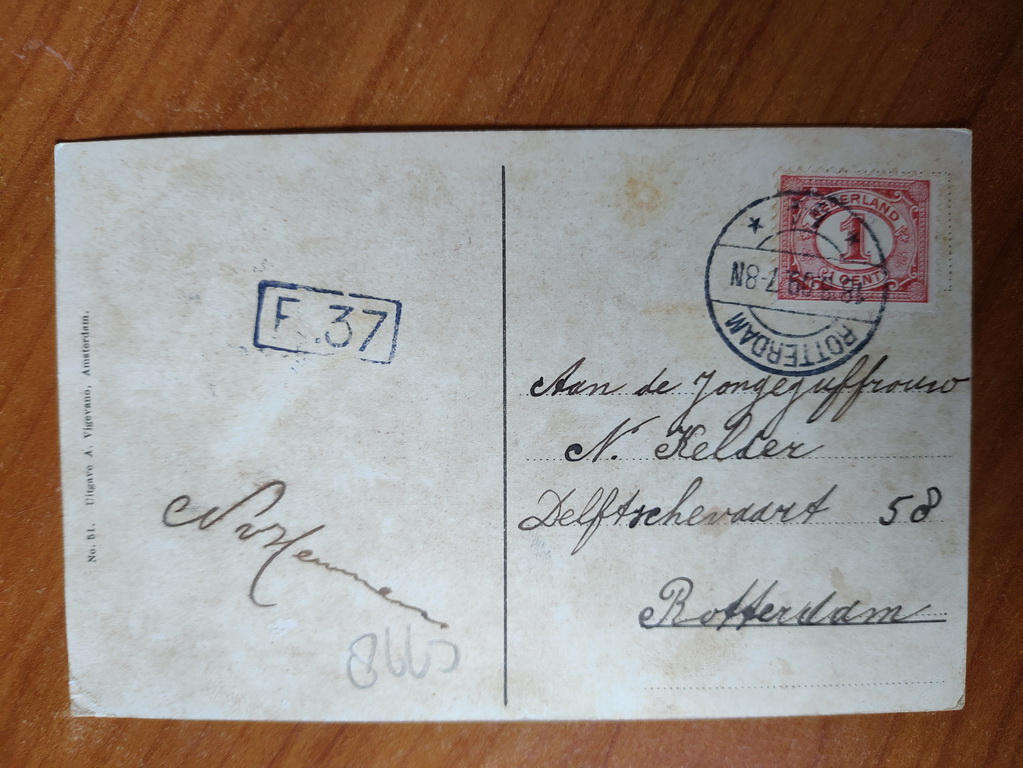 No. 51. Uitgave A. Vigevano, Amsterdam.
F. 37
NEDERLAND
1
CENT
ROTTERDAM
7-8N
Aan de Jongejuffrouw
N. Kelder
Delftschevaart 58
Rotterdam